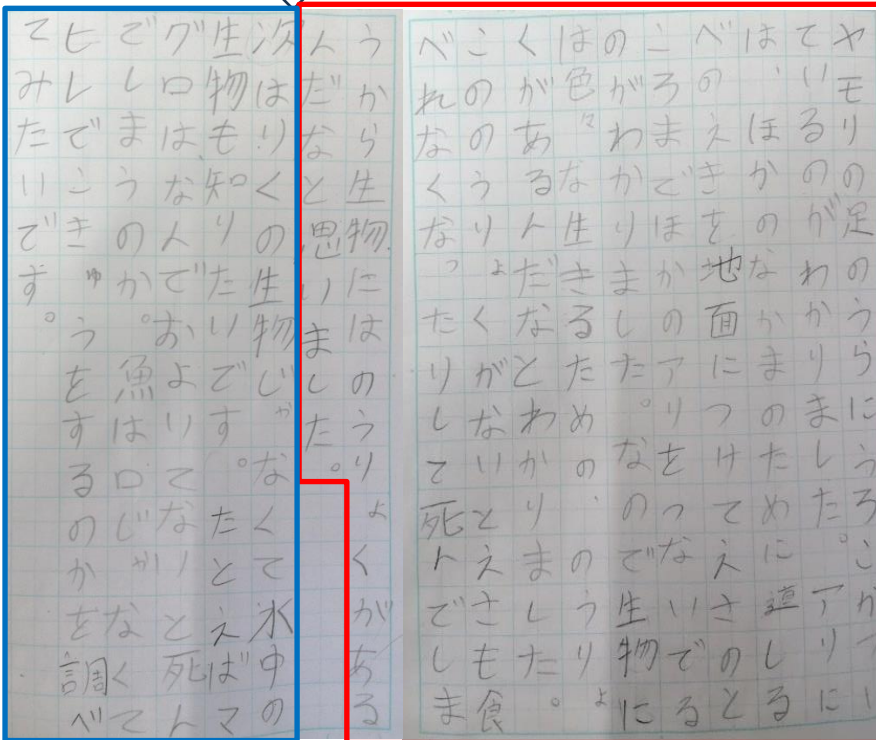 ヤモリの足のうらにうろこがつい
ているのがわかりました。アリに
は、ほかのなかまのために道しる
べのえきを地面につけてえさのと
ころまでほかのアリをつないでる
のがわかりました。なので生物に
は色々な生きるための、のうりょ
くがあるんだなとわかりました。
こののうりょくがないとえさも食
べれなくなったりして死んでしま
うから生物にはのうりょくがある
んだなと思いました。
次はりくの生物じゃなくて水中の
生物も知りたいです。たとえばマ
グロはなんでおよいてないと死ん
でしまうのか。魚は口じゃなくて
ヒレでこきゅうをするのかを調べ
てみたいです。